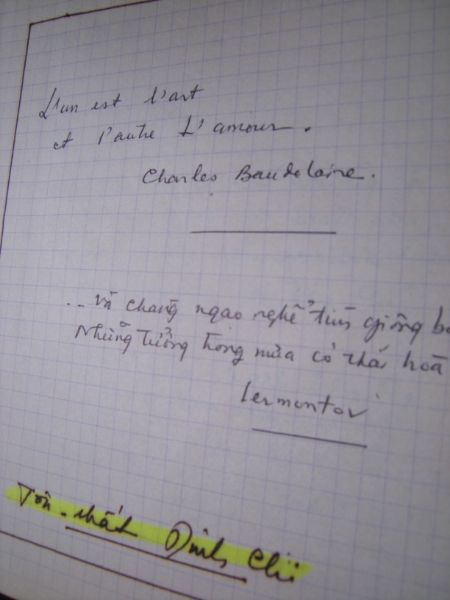 L'un est l'art
et l'autre L'amour.
Charles Baudelaire.
... Và chàng ngạo nghễ tìm giông b
Những tưởng trong mưa có thái hoà
Lermontov
Tôn-thất Đình Chi